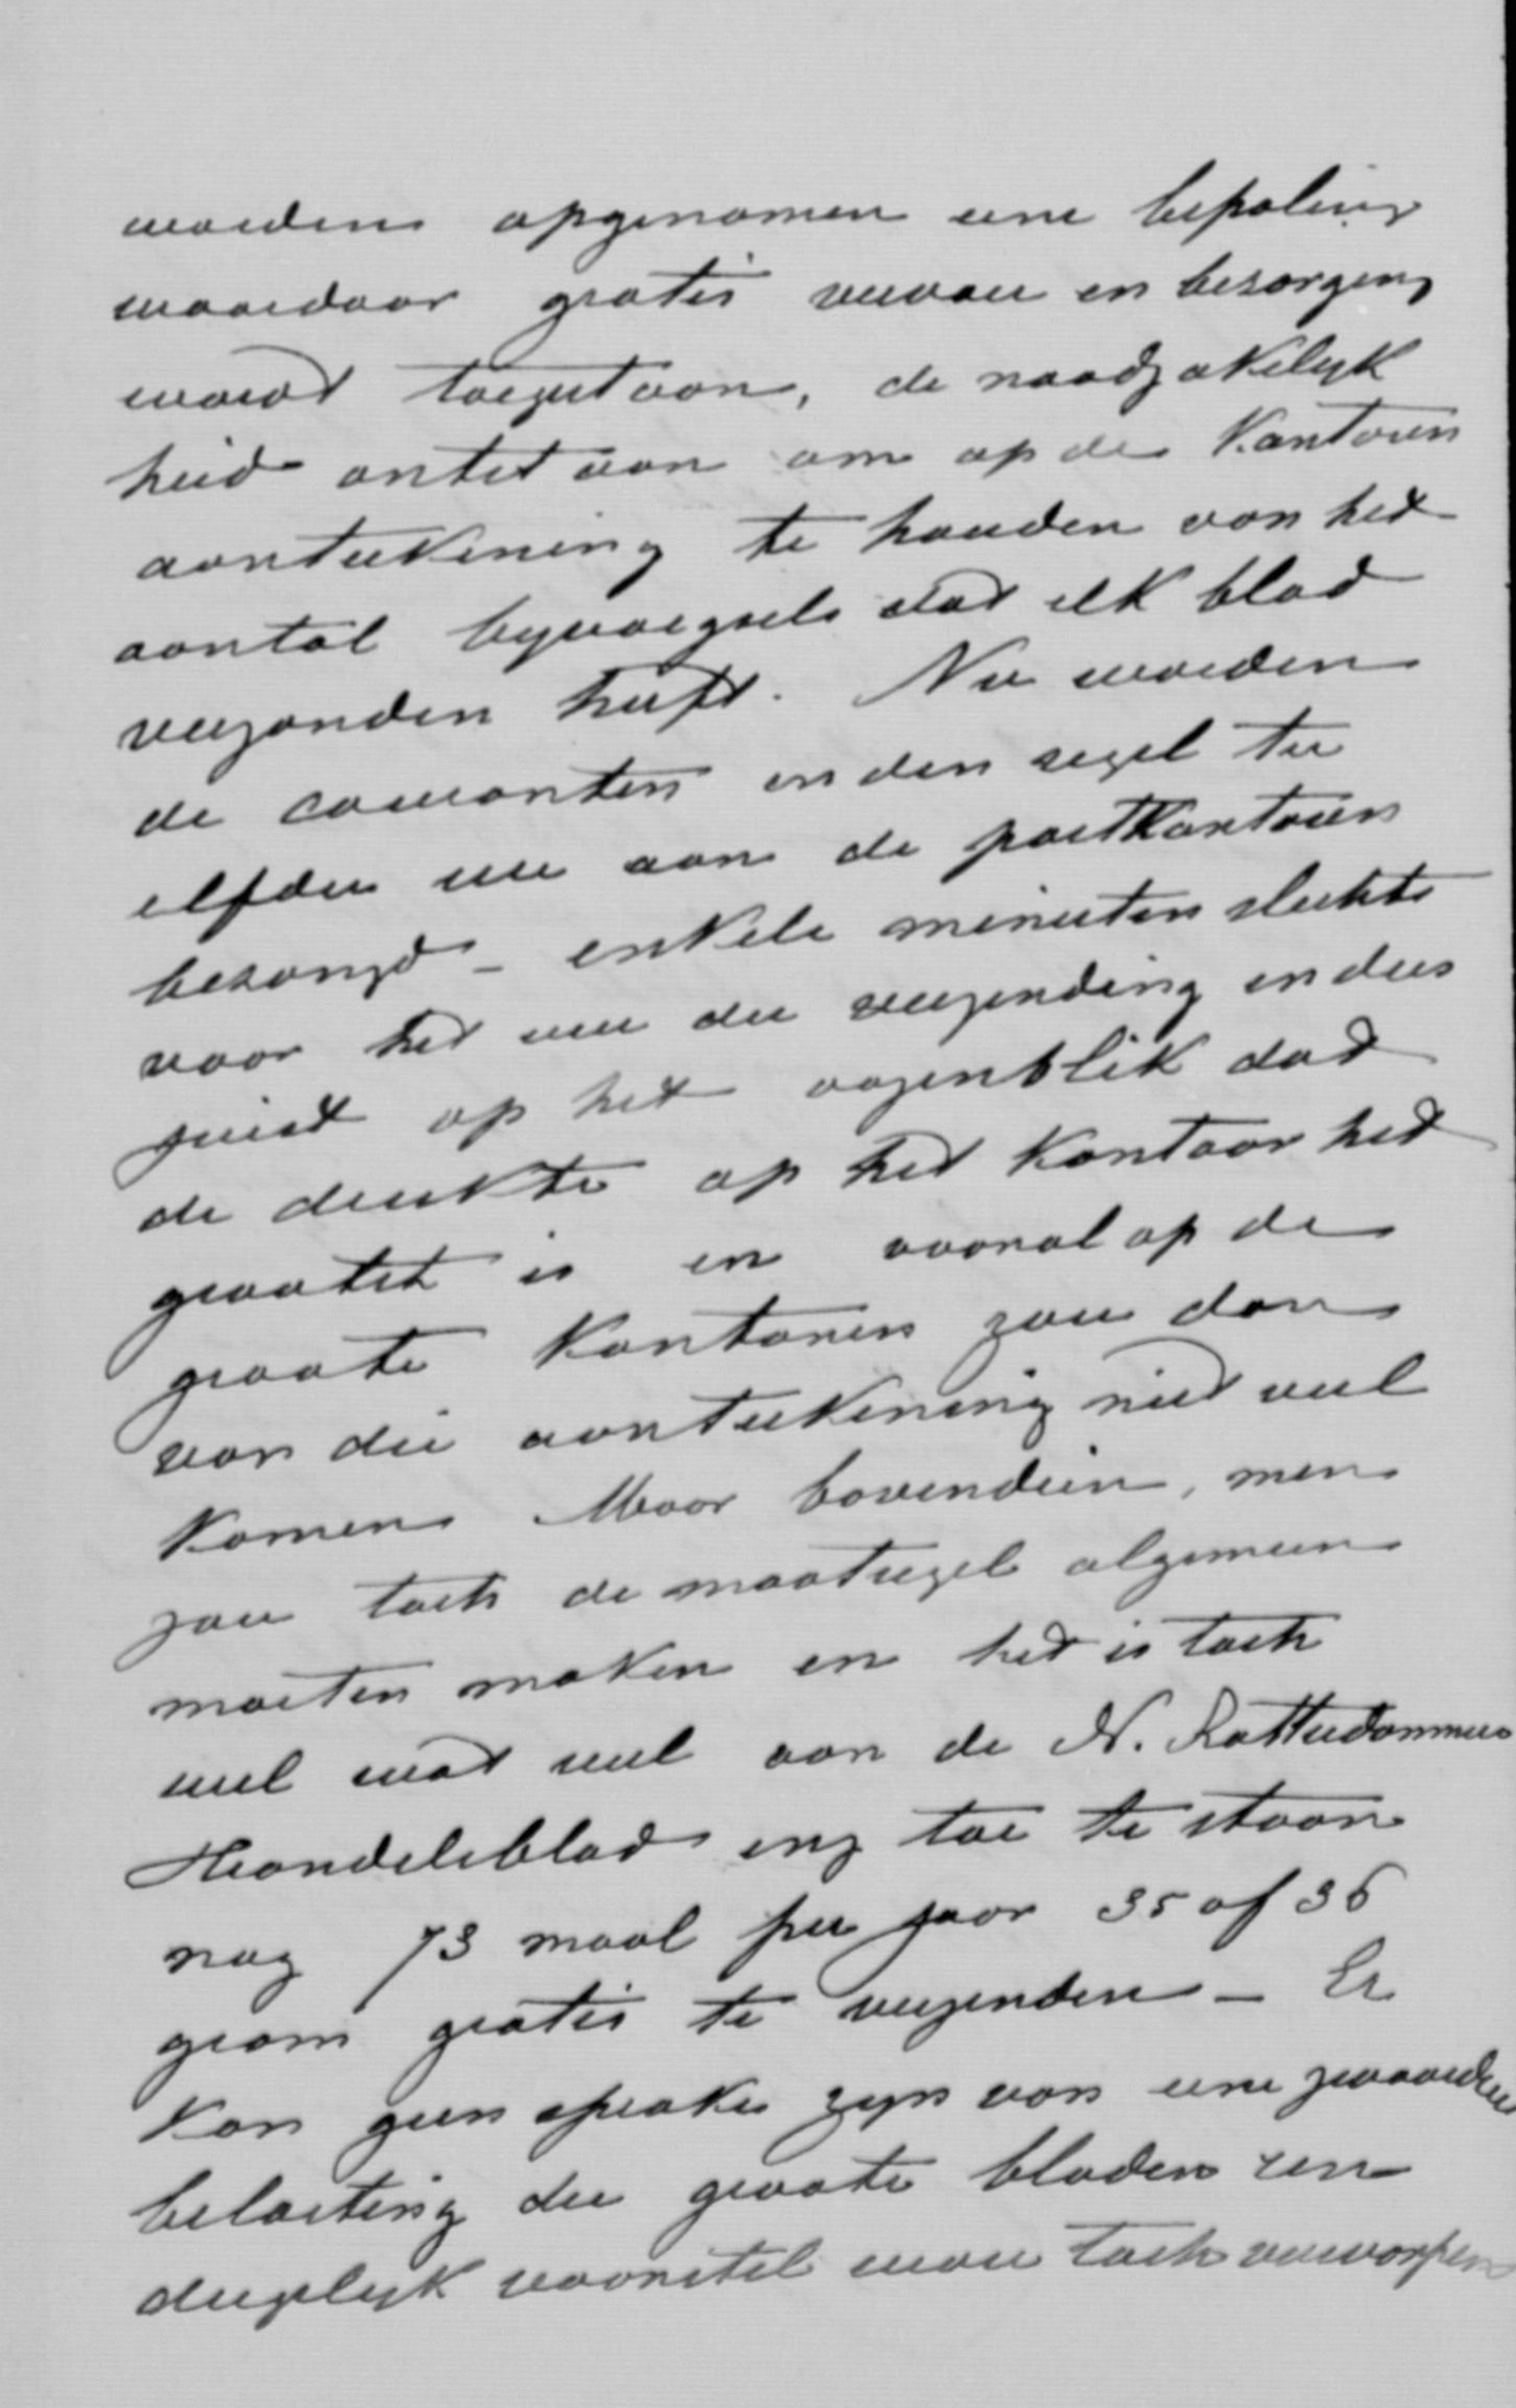 worden opgenomen eene bepaling
waardoor gratis vervoer en bezorging
wordt toegestaan, de noodzakelijk
heid ontstaan om op de Kantoren
aanteekening te houden van het
aantal bijvoegsels dat elk blad
verzonden heeft. Nu worden
de couranten in den regel ter
elfder ure aan de postkantoren
bezorgd – enkele minuten slechts
voor het uur der verzending en dus
juist op het oogenblik dat
de drukte op het Kantoor het
grootst is en vooral op de
groote Kantoren zou dan
van die aanteekening niet veel
Komen. Maar bovendien, men
zou toch de maatregel algemeen
moeten maken en het is toch
wel wat veel aan de N. Rotterdammer
Handelsblad enz toe te staan
nog 73 maal per jaar 35 of 36
gram gratis te verzenden – Er
Kan geen sprake zijn van eene zwaardere
belasting der groote bladen een
dergelijk voorstel werd toch verworpen